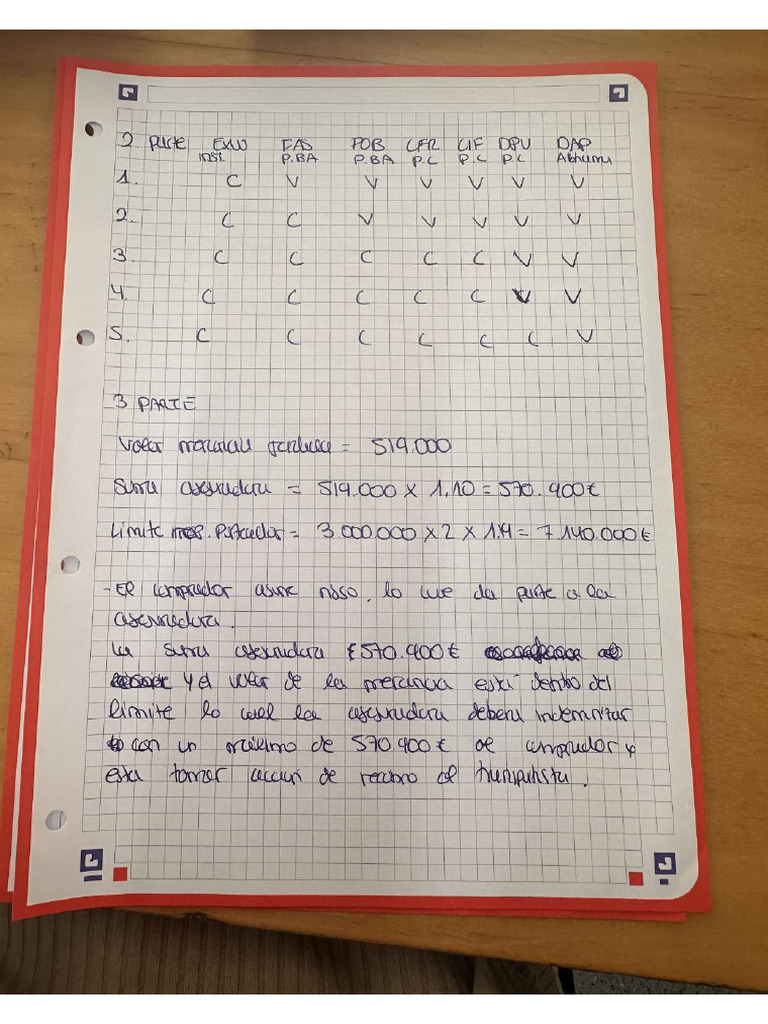 2 parte EXW FAS FOB CFR CIF DPU DAP
inst. P.BA P.BA P.C P.C P.C
1. C V V V V V V
2. C C V V V V V
3. C C C C C V V
4. C C C C C V V
5. C C C C C C V
3 PARTE
Valor mercancia = 519.000
Suma aseguradora = 519.000 x 1,10 = 570.900€
Limite Porteador = 3.000.000 x 2 x 1.19 = 7.140.000€
- El comprador asume riesgo, lo que da parte a la
aseguradora.
La suma aseguradora 570.900€
y el valor de la mercancia está dentro del
limite lo cual la aseguradora deberá indemnizar
con un máximo de 570.900€ al comprador y
esta tomar acción de recobro al transportista.